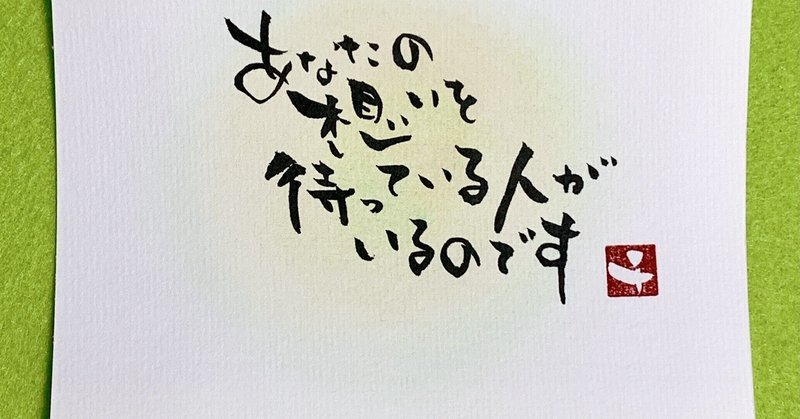 あなたの
想いを
待っている人が
いるのです